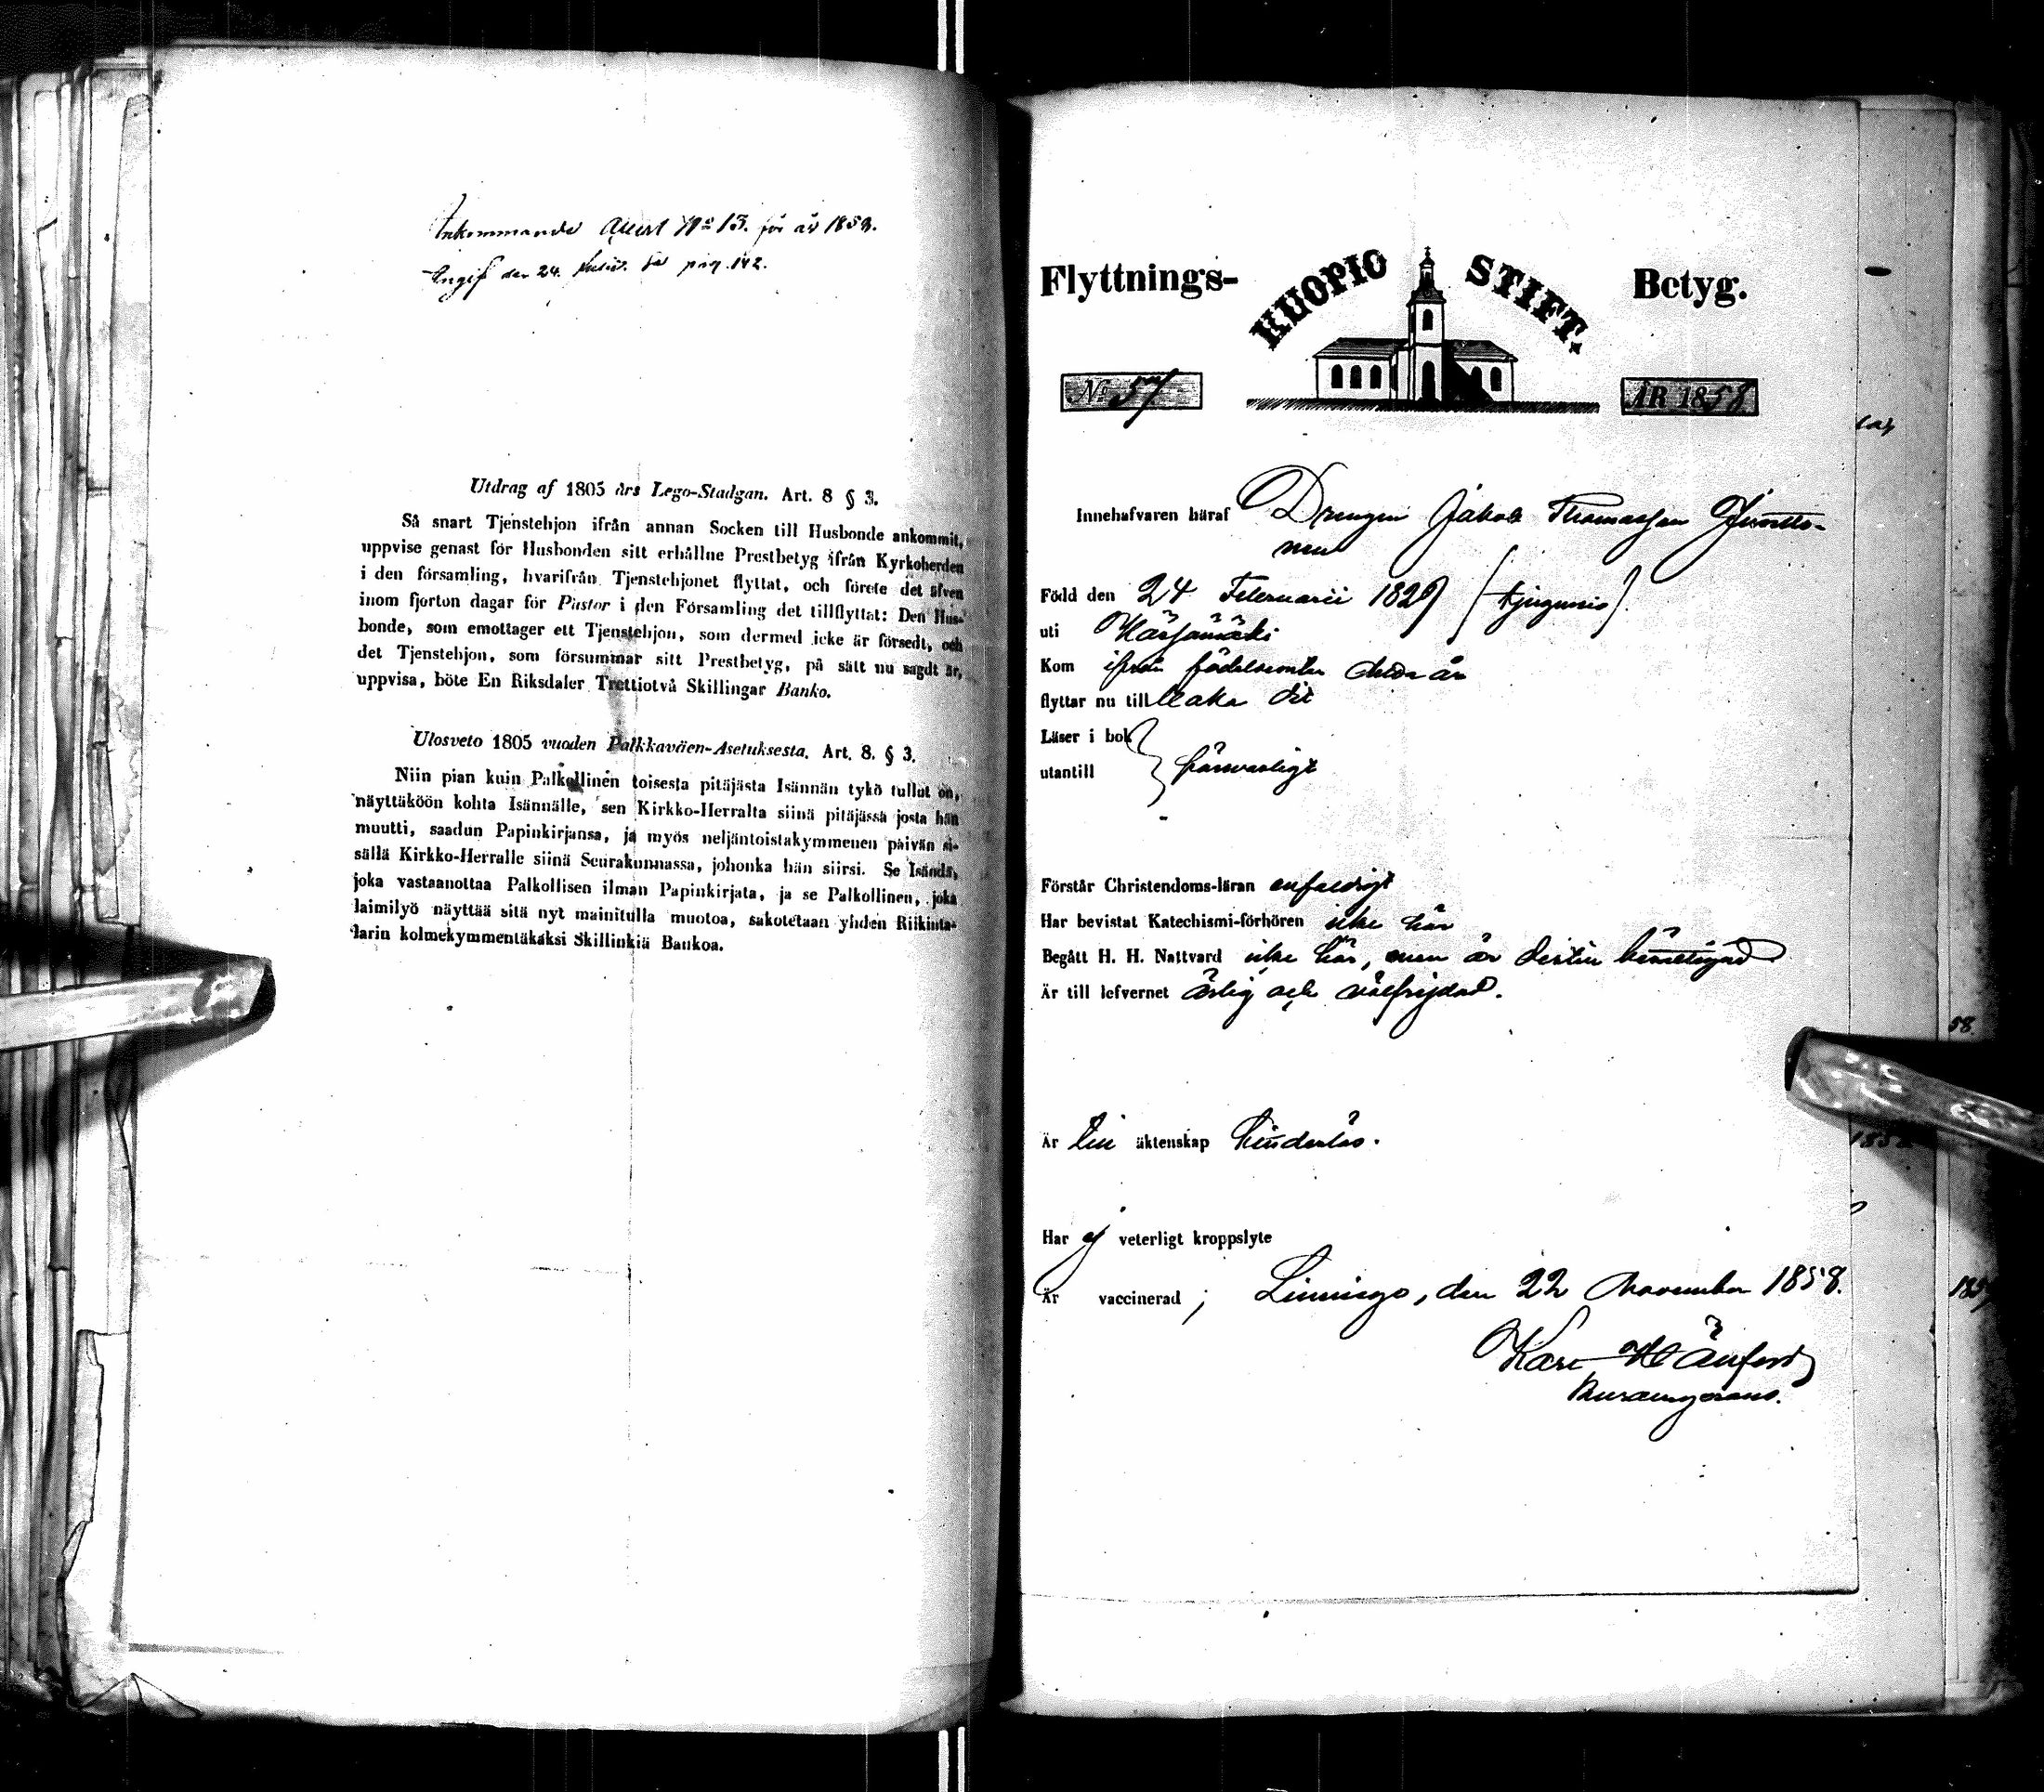 Inkommande Attest No 13. för år 1859.
den 24. pag. 142.
Utdrag af 1805 års Lego-Stadgan. Art. 8 § 3.
Så snart Tjenstehjon ifrån annan Socken till Husbonde ankommit,
uppvise genast för Husbonden sitt erhållne Prestbetyg ifrån Kyrkoherden
i den församling, hvarifrån Tjenstehjonet flyttat, och förete det äfven
inom fjorton dagar för Pastor i den Församling det tillflyttat: Den Hus-
bonde, som emottager ett Tjenstehjon, som dermed icke är försedt, och
det Tjenstehjon, som försummar sitt Prestbetyg, på sätt nu sagdt är,
uppvisa, böte En Riksdaler Trettiotvå Skillingar Banko.
Ulosveto 1805 vuoden Palkkaväen-Asetuksesta. Art. 8. § 3.
Niin pian kuin Palkollinen toisesta pitäjästä Isännän tykö tullut on,
näyttäköön kohta Isännälle, sen Kirkko-Herralta siinä pitäjässä josta hän
muutti, saadun Papinkirjansa, ja myös neljäntoistakymmenen päivän si-
sällä Kirkko-Herralle siinä Seurakunnassa, johonka hän siirsi. Se Isändä,
joka vastaanottaa Palkollisen ilman Papinkirjata, ja se Palkollinen, joka
laimilyö näyttää sitä nyt mainitulla muotoa, sakotetaan yhden Riikinta-
larin kolmekymmentäkaksi Skillinkiä Bankoa.
Flyttnings- KUOPIO STIFT. Betyg.
No 57 ÅR 1858
Innehafvaren häraf Drengen Jakob Thomasson
nen
Född den 24 Februarii 1829 (tjugunio)
uti Kärsämäki
Kom ifrån födelseorten detta år
flyttar nu till baka dit
Läser i bok
utantill försvarligt
Förstår Christendoms-läran enfaldigt
Har bevistat Katechismi-förhören icke här
Begått H. H. Nattvard icke här, men är dertill berättigad
Är till lefvernet ärlig och välfrejdad.
Är till äktenskap hinderlös.
Har ej veterligt kroppslyte
Är vaccinerad ; Limingo, den 22 November 1858.
Karl
58